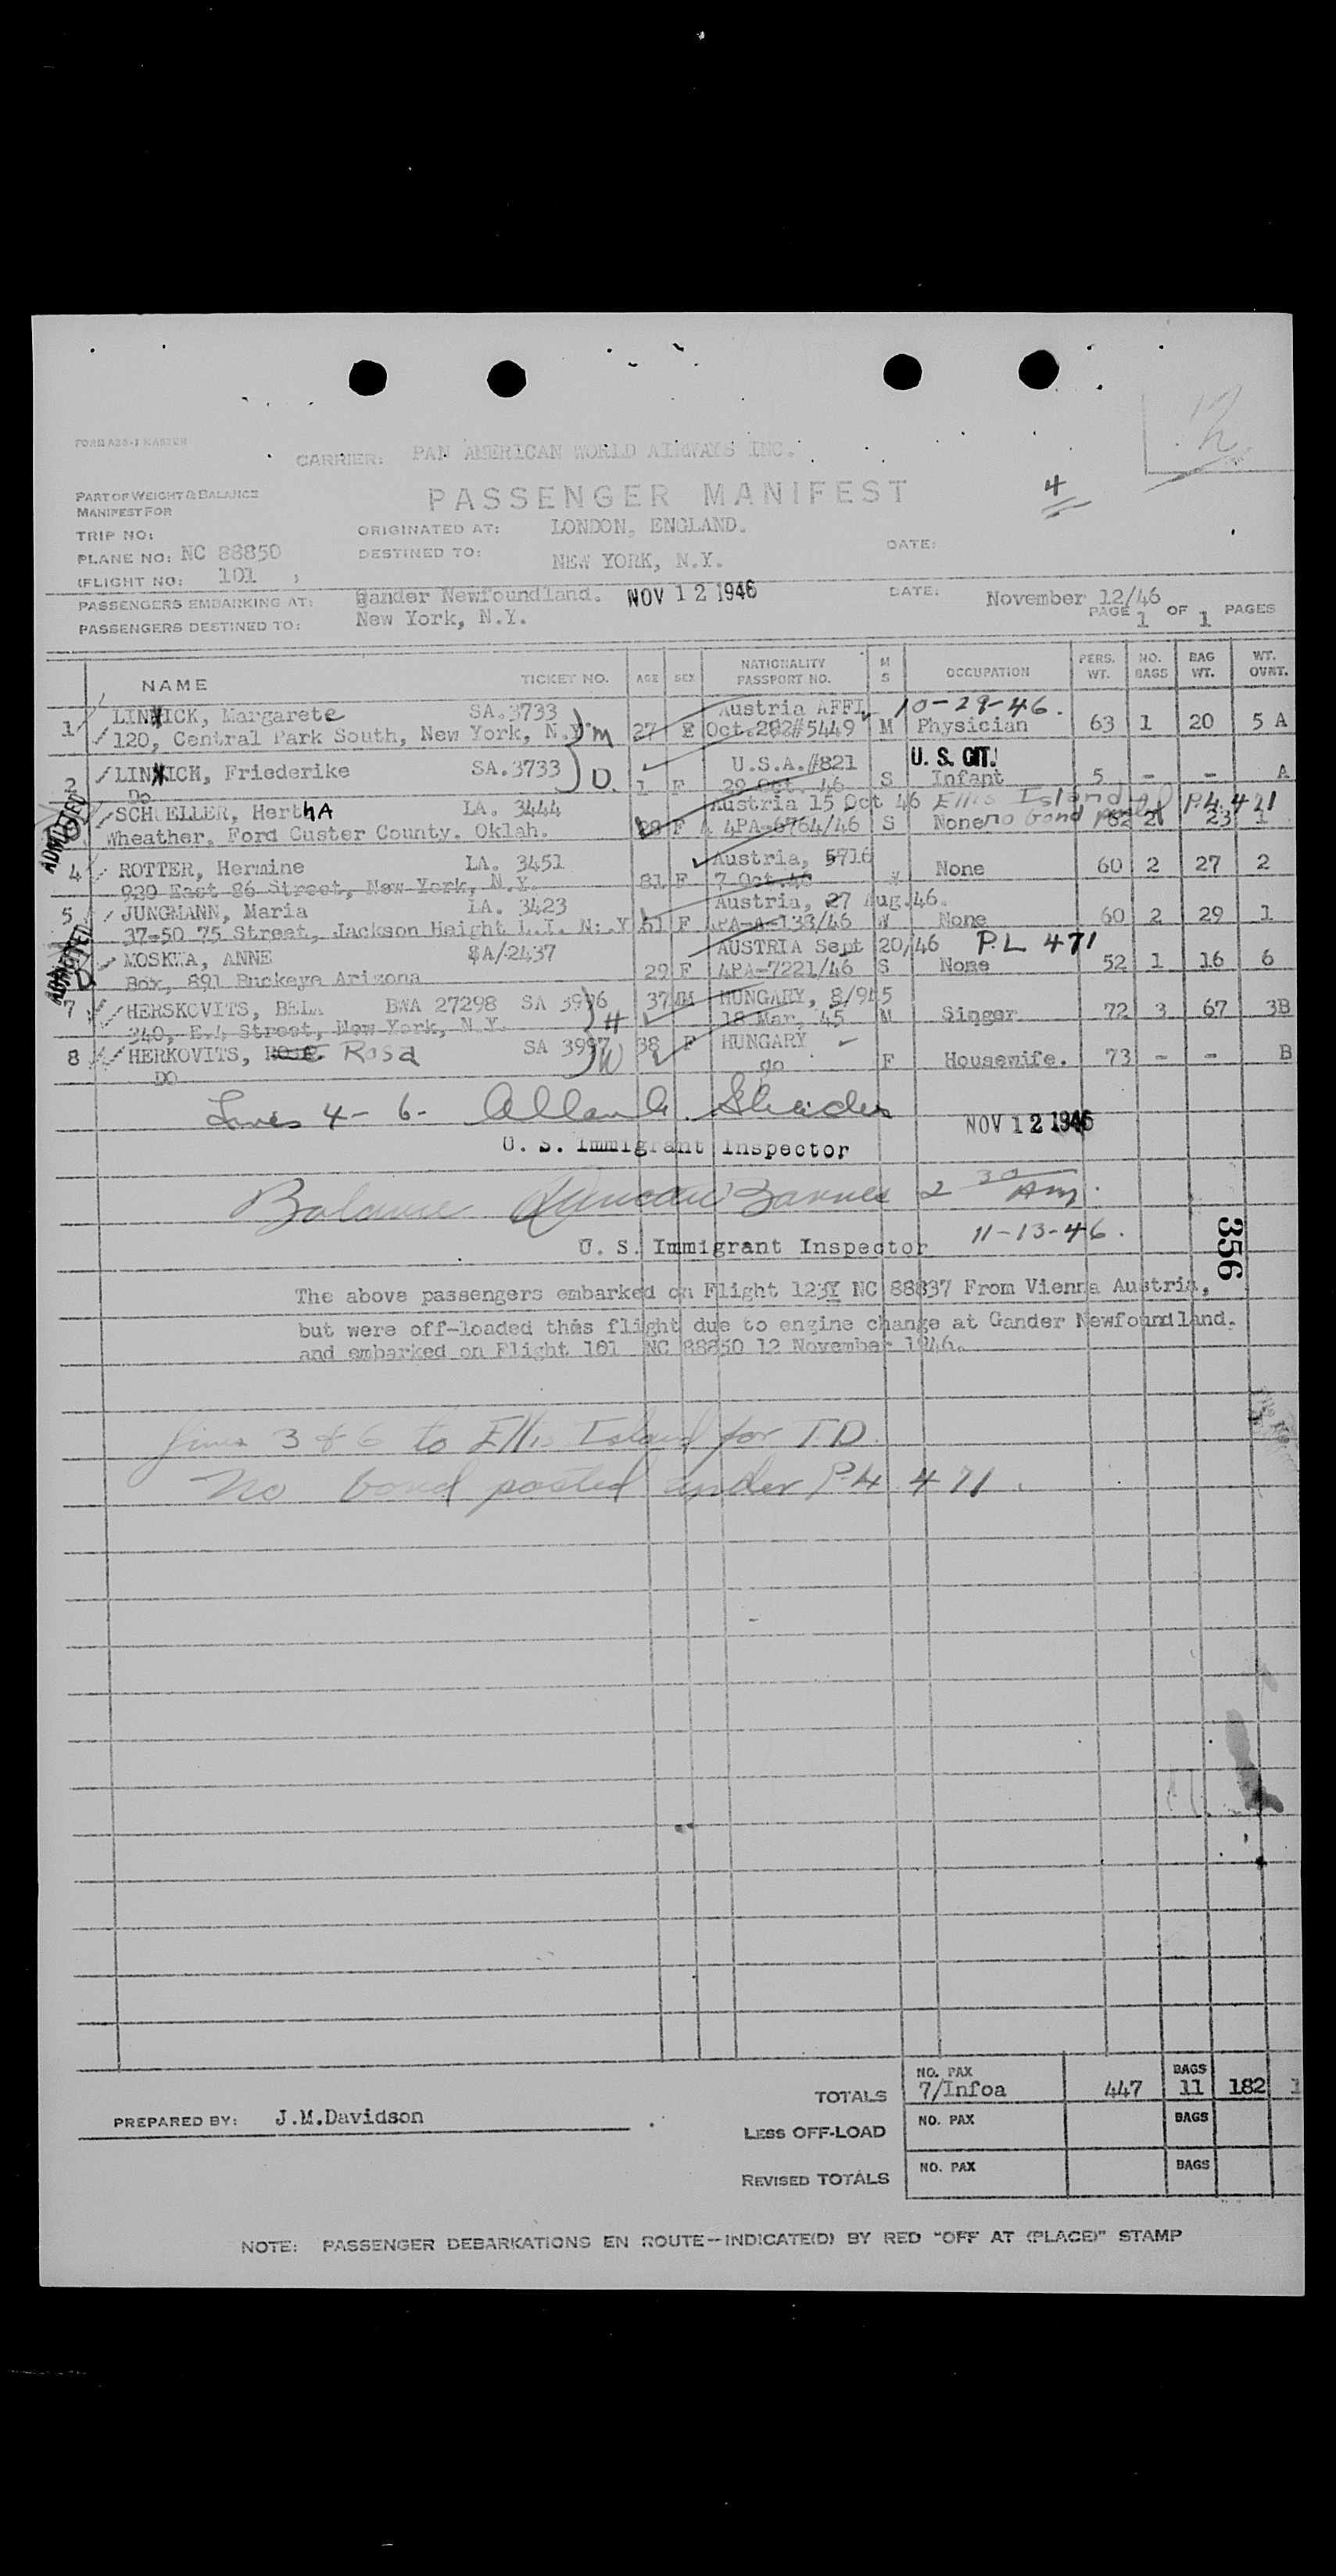 FORM A28-1 MASTER
CARRIER: PAN AMERICAN WORLD AIRWAYS INC.
PART OF WEIGHT & BALANCE
MANIFEST FOR
PASSENGER MANIFEST
4
TRIP NO:
ORIGINATED AT: LONDON, ENGLAND.
DATE:
PLANE NO: NC 88850
DESTINED TO: NEW YORK, N.Y.
(FLIGHT NO: 101 )
PASSENGERS EMBARKING AT: Gander Newfoundland. NOV 12 1946 DATE: November 12/46
PASSENGERS DESTINED TO: New York, N.Y. PAGE 1 OF 1 PAGES
NAME TICKET NO. AGE SEX NATIONALITY PASSPORT NO. M S OCCUPATION PERS. WT. NO. BAGS BAG WT. WT. OVNT.
LINKICK, Margarete SA.3733 Austria AFFI 10-29-46.
1 120, Central Park South, New York, N.Y. m 27 F Oct.282#5449 M Physician 63 1 20 5 A
U.S.A.#821 U.S. CIT.
2 LINKICH, Friederike SA.3733 D. 1 F 29 Oct. 46 S Infant 5 - - A
Do
SCHUELLER, HerthA LA. 3444 Austria 15 Oct 46 Ellis Island P.L. 471
ADMITTED Wheather, Ford Custer County. Oklah. 29 F 4PA-6764/46 S None no bond 62 2 23 1
4 ROTTER, Hermine LA. 3451 Austria, 5716 None 60 2 27 2
920 East 86 Street, New York, N.Y. 81 F 7 Oct.46
5 JUNGMANN, Maria LA. 3423 Austria, 27 Aug.46.
37-50 75 Street, Jackson Height L.I. N.Y 51 F 4PA-A-133/46 W None 60 2 29 1
ADMITTED MOSKWA, ANNE SA/2437 AUSTRIA Sept 20/46 P.L 471
Box, 891 Buckeye Arizona 29 F 4PA-7221/46 S None 52 1 16 6
7 HERSKOVITS, BELA BWA 27298 SA 3996 37 M HUNGARY, 8/945
340, E.4 Street, New York, N.Y. H 18 Mar, 45 M Singer 72 3 67 3B
8 HERKOVITS, Rosa SA 3997 W 38 F HUNGARY
DO do F Housewife. 73 - - B
Lines 4-6- Allan G. Shader
NOV 12 1946
U. S. Immigrant Inspector
Balance Duncan Barnes 2 30 AM.
U. S. Immigrant Inspector 11-13-46.
356
The above passengers embarked on Flight 123Y NC 88837 From Vienna Austria,
but were off-loaded this flight due to engine change at Gander Newfoundland.
and embarked on Flight 101 NC 88850 12 November 1946.
Lines 3 & 6 to Ellis Island for T.D.
No bond posted under P.L. 471.
TOTALS NO. PAX 7/Infoa 447 BAGS 11 182 1
PREPARED BY: J.M.Davidson
LESS OFF-LOAD NO. PAX BAGS
REVISED TOTALS NO. PAX BAGS
NOTE: PASSENGER DEBARKATIONS EN ROUTE--INDICATE(D) BY RED "OFF AT (PLACE)" STAMP